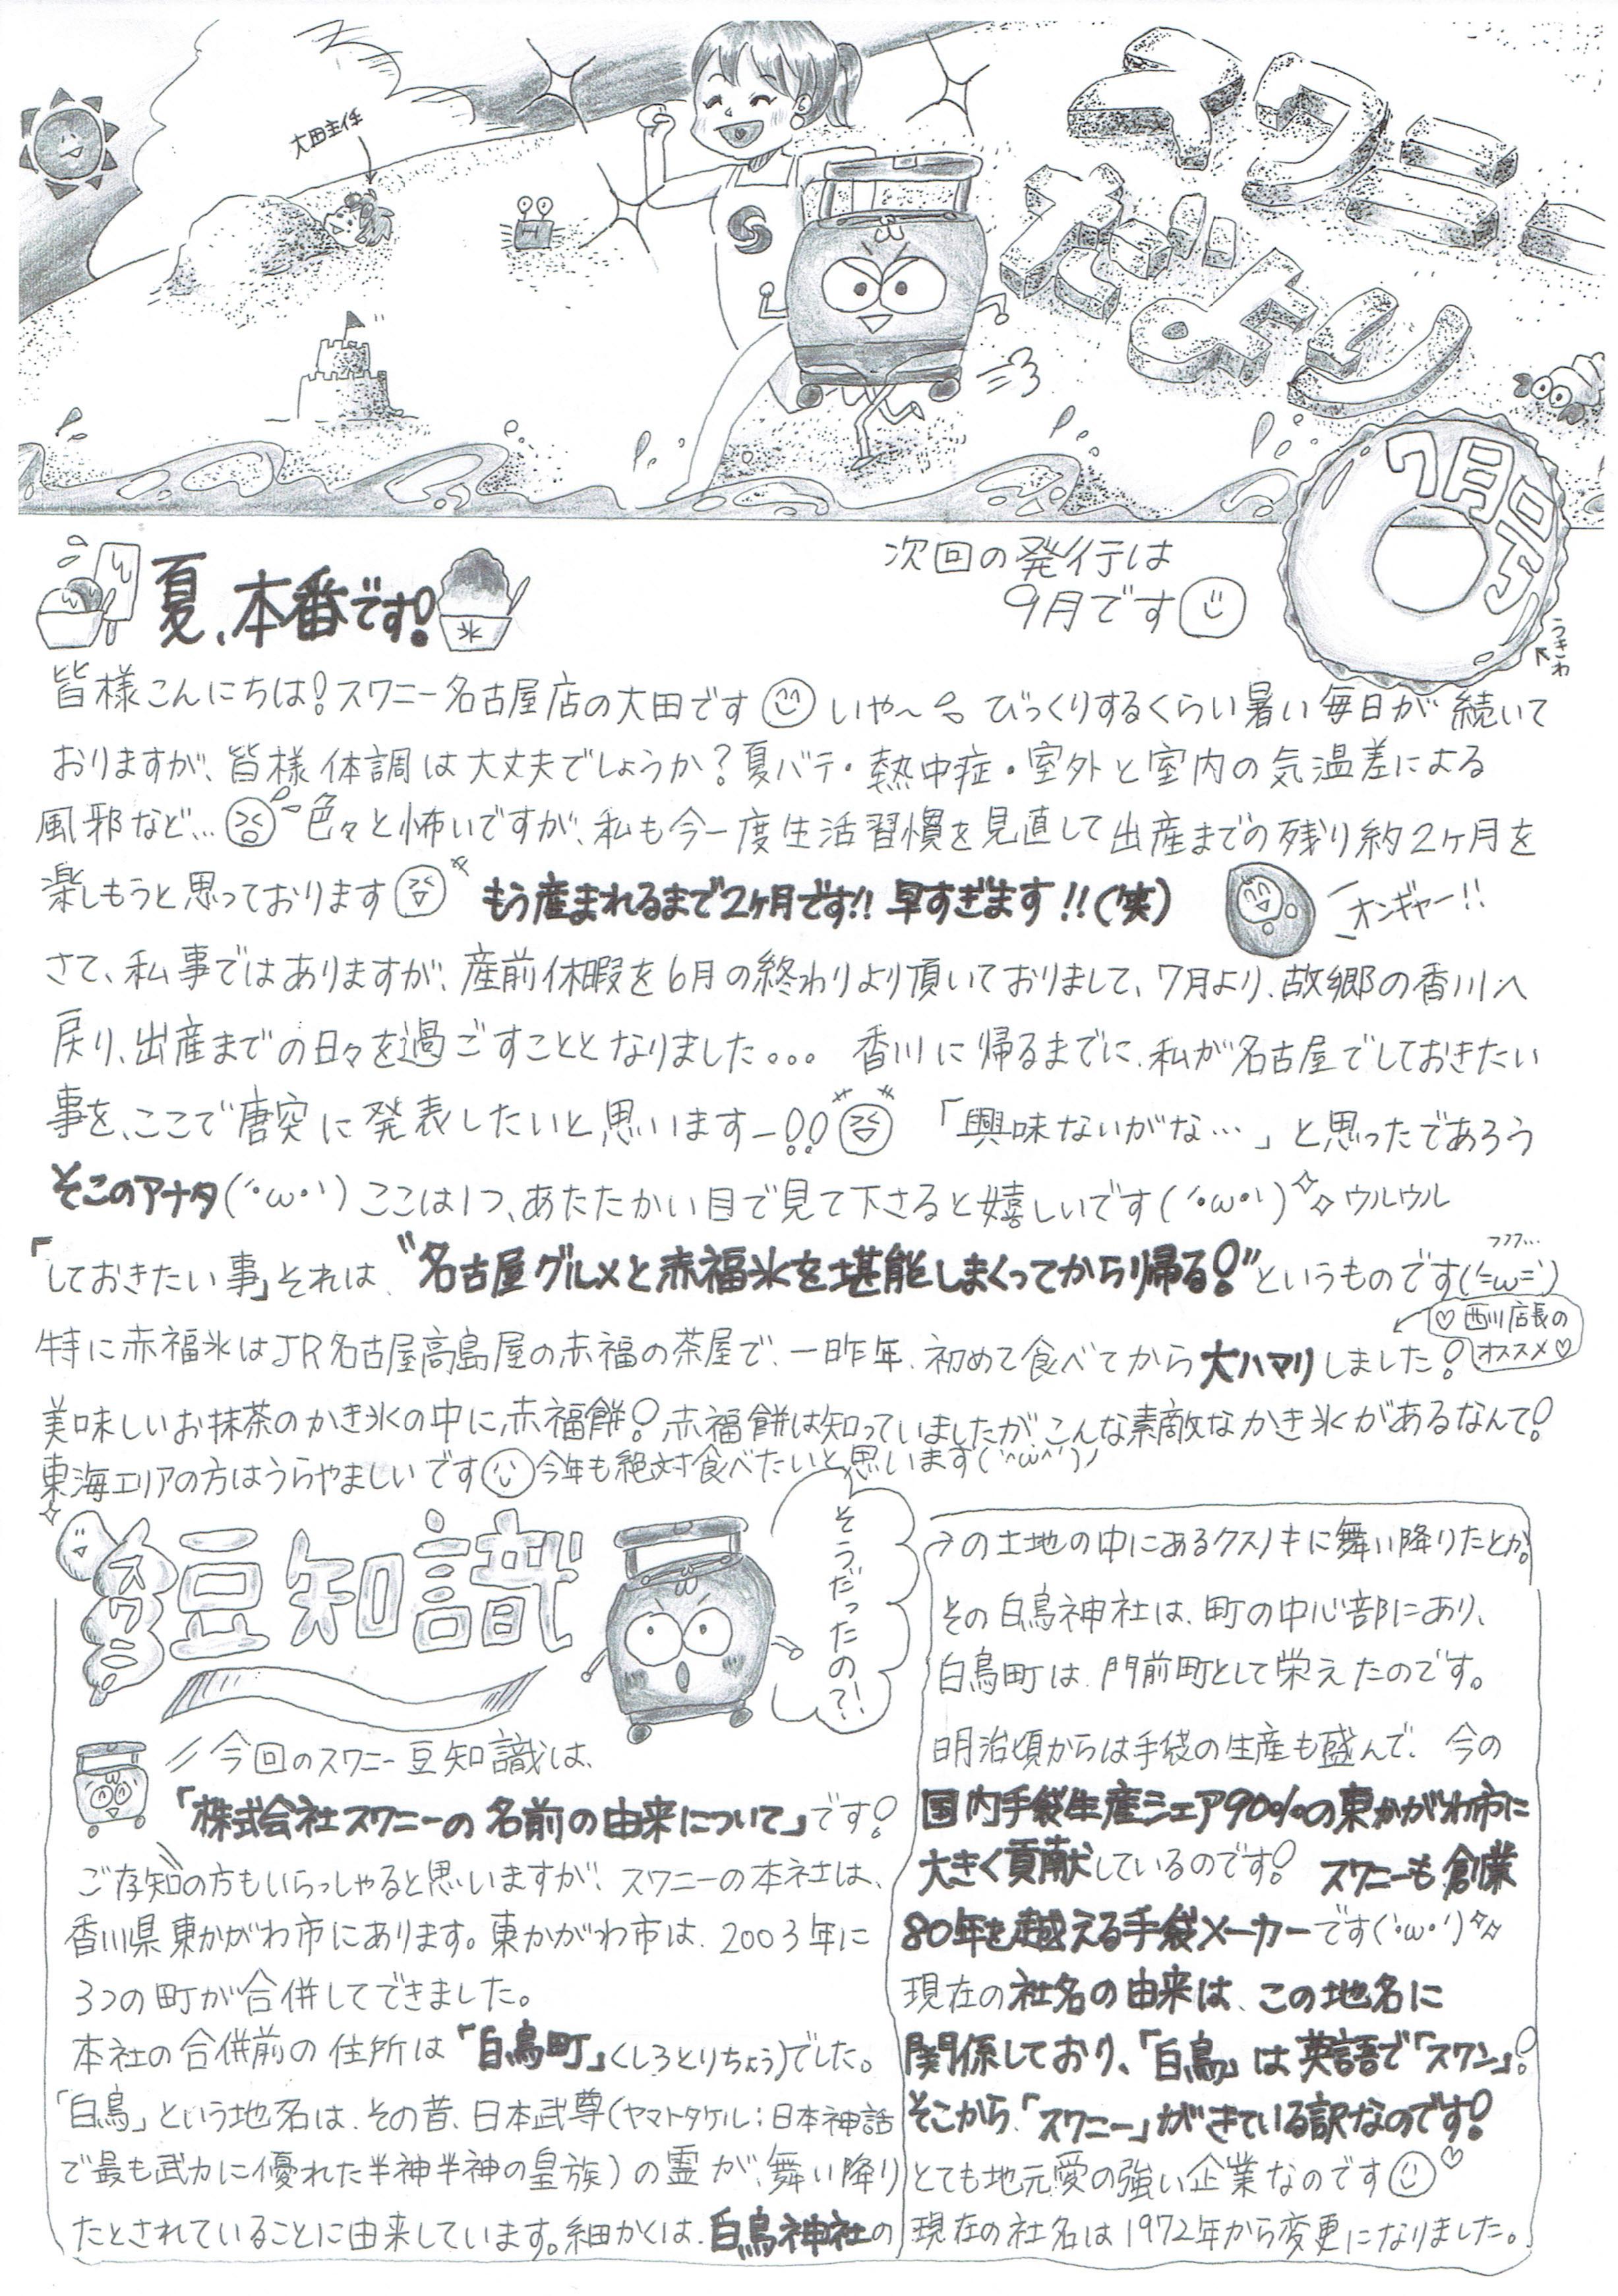 大田主任
スワニー
だより
7月号
うきわ
次回の発行は
9月です
夏、本番です!
氷
皆様こんにちは!スワニー名古屋店の大田です いや〜 びっくりするくらい暑い毎日が続いて
おりますが、皆様体調は大丈夫でしょうか?夏バテ・熱中症・室外と室内の気温差による
風邪など… 色々と怖いですが、私も今一度生活習慣を見直して出産までの残り約2ヶ月を
楽しもうと思っております もう産まれるまで2ヶ月です!!早すぎます!!(笑)
オンギャー!!
さて、私事ではありますが、産前休暇を6月の終わりより頂いておりまして、7月より、故郷の香川へ
戻り、出産までの日々を過ごすこととなりました。。。 香川に帰るまでに、私が名古屋でしておきたい
事を、ここで唐突に発表したいと思いますー!! 「興味ないがな…」と思ったであろう
そこのアナタ(´・ω・`)ここは1つ、あたたかい目で見て下さると嬉しいです(´・ω・`)ウルウル
「しておきたい事」それは、"名古屋グルメと赤福氷を堪能しまくってから帰る!"というものです(´=ω=`)
フフフ…
特に赤福氷はJR名古屋高島屋の赤福の茶屋で、一昨年、初めて食べてから大ハマりしました!
♡西川店長の
オススメ♡
美味しいお抹茶のかき氷の中に、赤福餅!赤福餅は知っていましたが、こんな素敵なかき氷があるなんて!
東海エリアの方はうらやましいです 今年も絶対食べたいと思います(´^ω^`)ノ
スワニー豆知識
そうだったの?!
今回のスワニー豆知識は、
「株式会社スワニーの名前の由来について」です!
ご存知の方もいらっしゃると思いますが、スワニーの本社は、
香川県東かがわ市にあります。東かがわ市は、2003年に
3つの町が合併してできました。
本社の合併前の住所は「白鳥町」(しろとりちょう)でした。
「白鳥」という地名は、その昔、日本武尊(ヤマトタケル;日本神話
で最も武力に優れた半神半神の皇族)の霊が、舞い降り
たとされていることに由来しています。細かくは、白鳥神社の
→の土地の中にあるクスノキに舞い降りたとか。
その白鳥神社は、町の中心部にあり、
白鳥町は、門前町として栄えたのです。
明治頃からは手袋の生産も盛んで、今の
国内手袋生産シェア90%の東かがわ市に
大きく貢献しているのです! スワニーも創業
80年を越える手袋メーカーです(´・ω・`)
現在の社名の由来は、この地名に
関係しており、「白鳥」は英語で「スワン」!
そこから、「スワニー」がきている訳なのです!
とても地元愛の強い企業なのです♡
現在の社名は1972年から変更になりました。